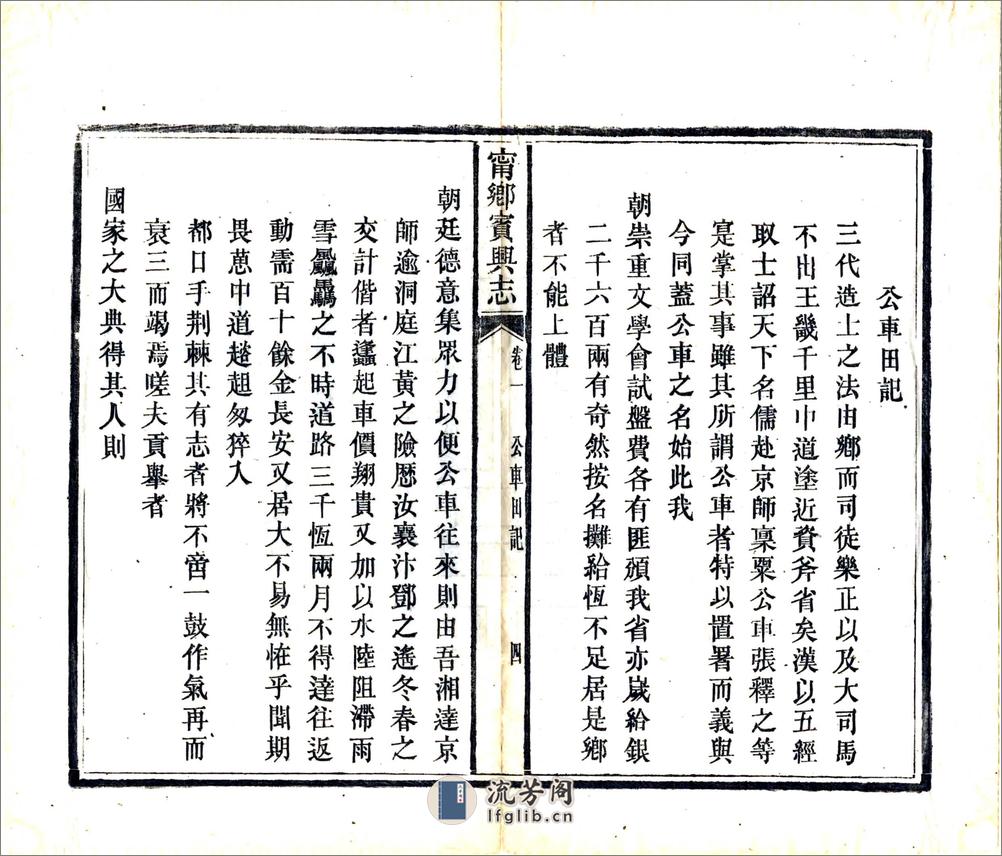 公車田記
三代造士之法由鄉而司徒樂正以及大司馬
不出王畿千里巾道塗近資斧省矣漢以五經
取士詔天下名儒赴京師稟粟公車張釋之等
寔掌其事雖其所謂公車者特以置署而義與
今同蓋公車之名始此我
朝崇重文學會試盤費各有匪頒我省亦歲給銀
二千六百兩有奇然按名攤給恆不足居是鄉
者不能上體
甯鄉賓興志
卷一
公車田記
四
朝廷德意集眾力以便公車往來則由吾湘達京
師逾洞庭江黃之險歷汝襄汴鄧之遙冬春之
交計偕者蠭起車價翔貴又加以水陸阻滯雨
雪飝驫之不時道路三千恆兩月不得達往返
動需百十餘金長安又居大不易無怪乎聞期
畏葸中道趑趄匆猝入
都口手荆棘其有志者將不啻一鼓作氣再而
衰三而竭焉嗟夫貢舉者
國家之大典得其人則
流芳阁
lfglib.cn